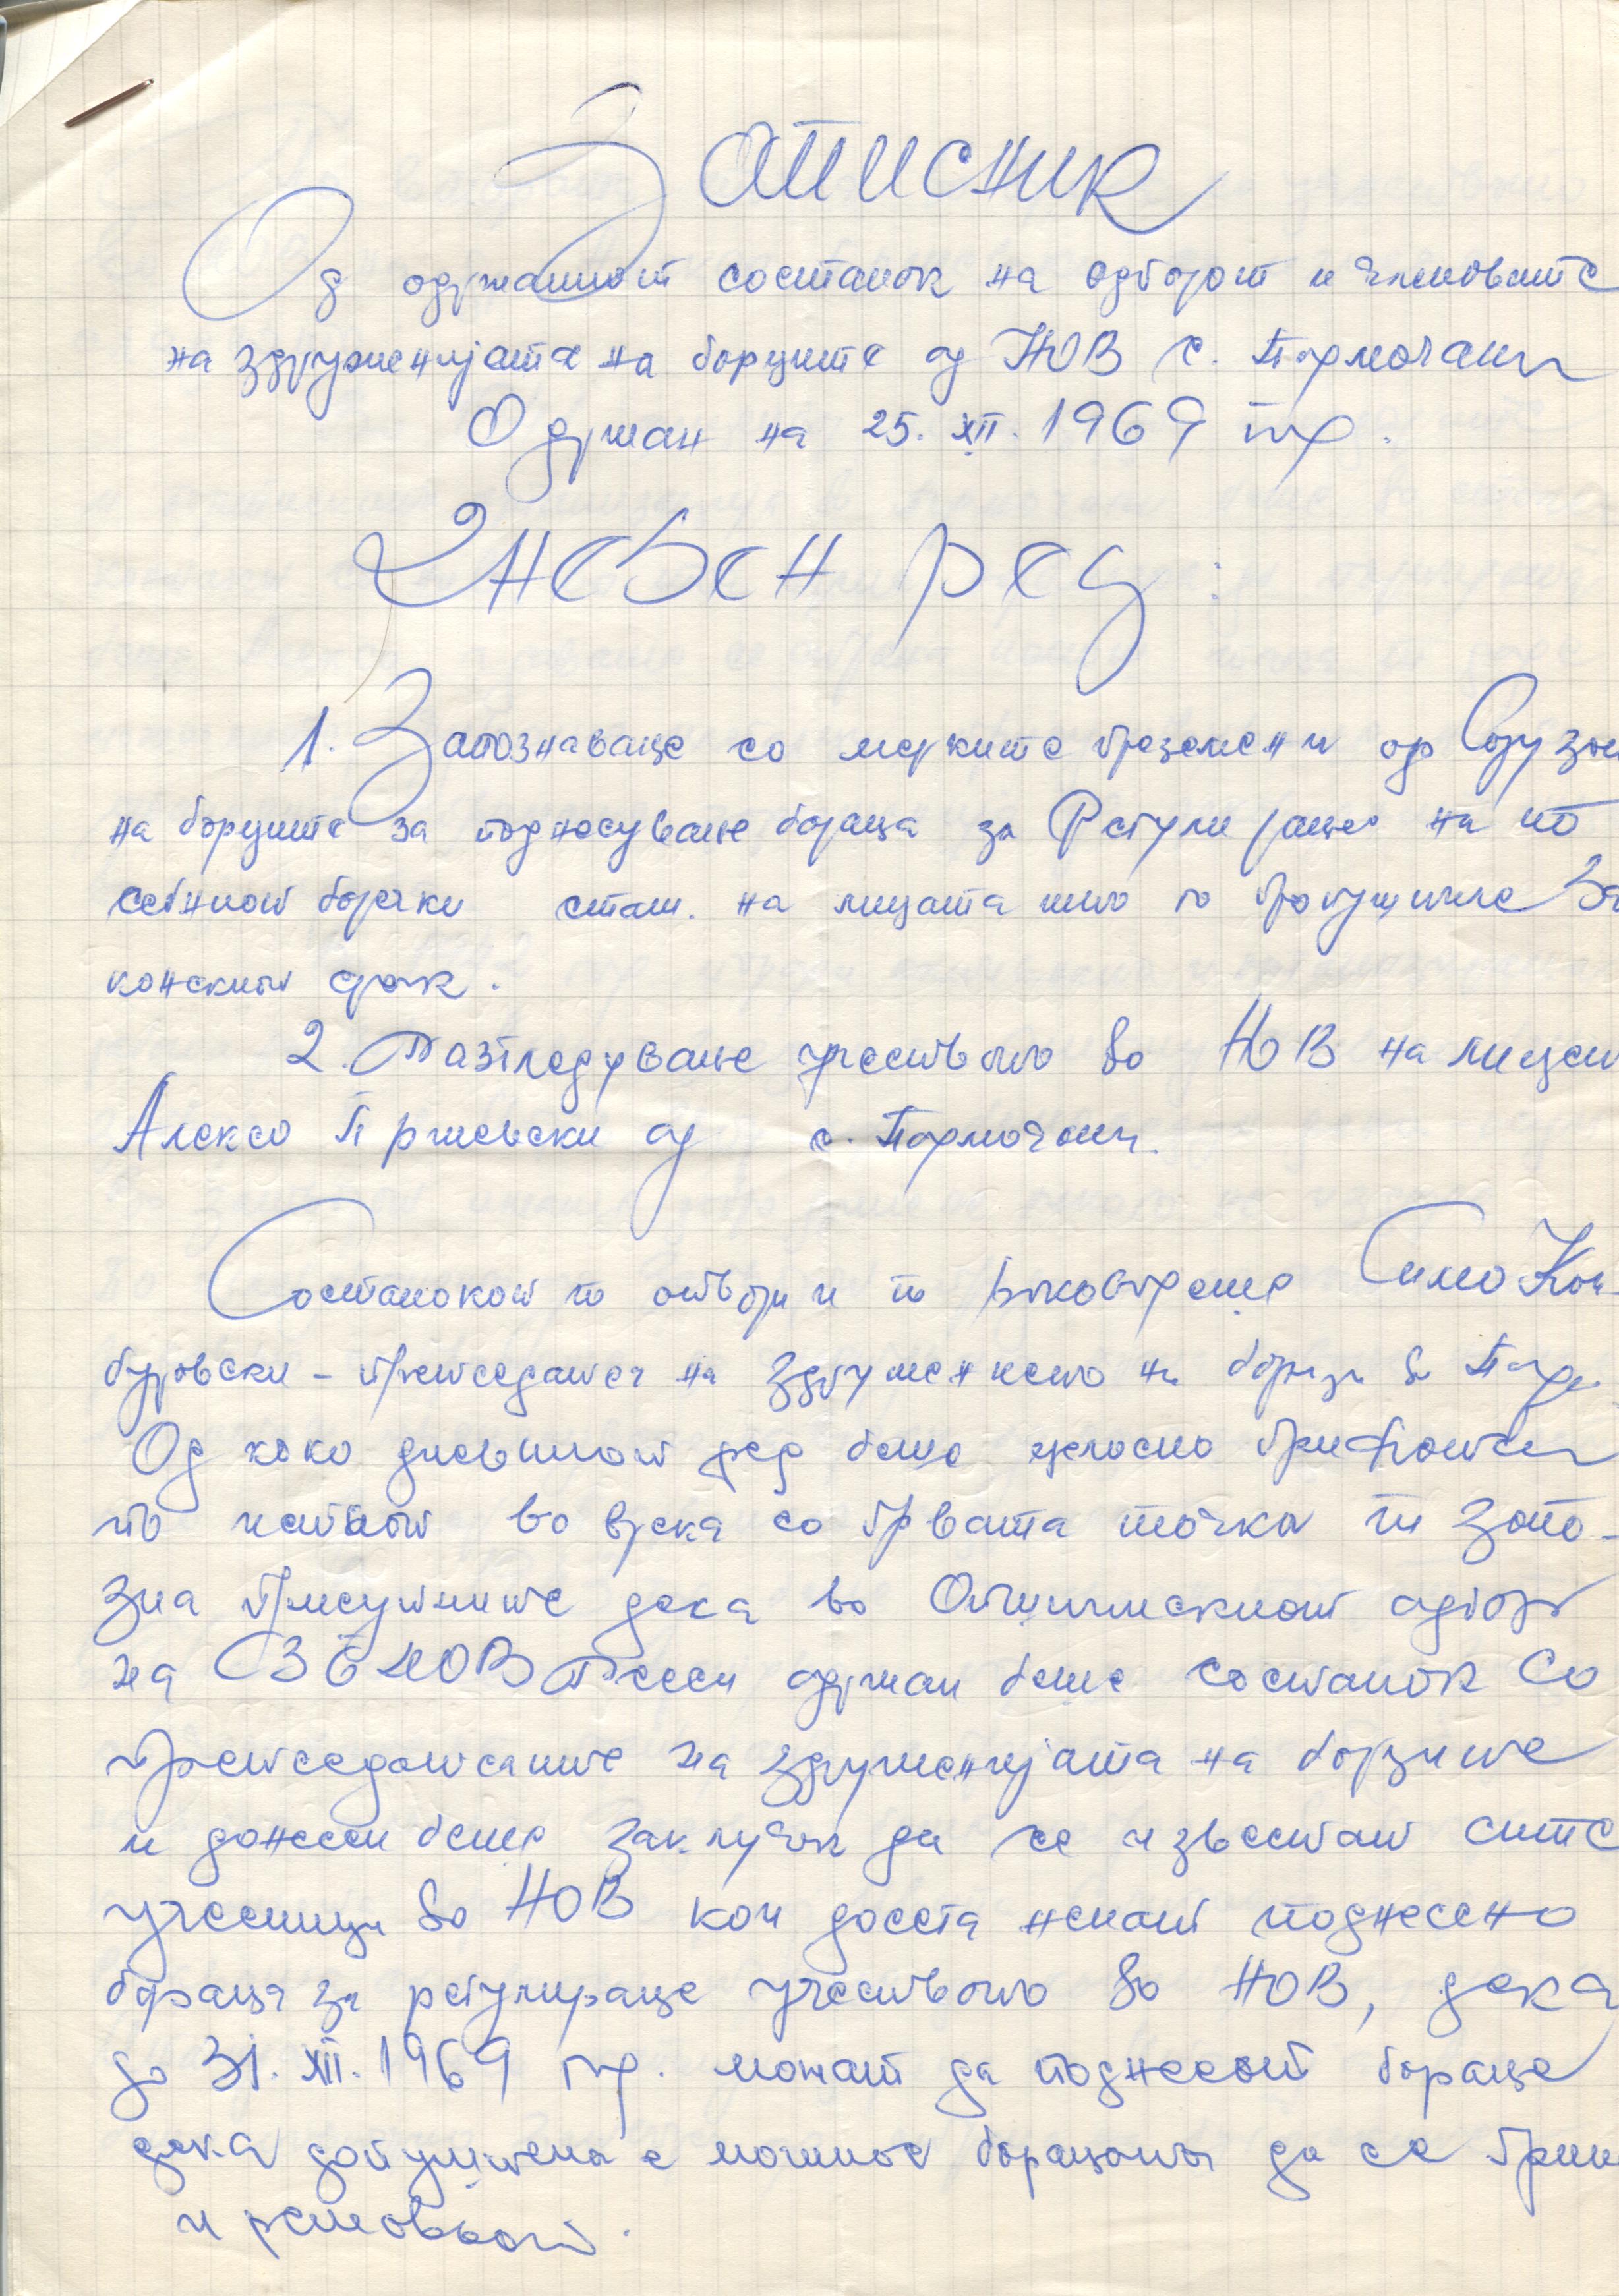 Записник
Од одржаниот состанок на одборот и членовите
на здруженијата на борците од НОВ с. Пармочани
Одржан на 25. XII. 1969 год.
Дневен ред:
1. Запознавање со мерките преземени од Сојузот
на борците за поднесување барања за Регулирање на по
себниот борачки стаж. на лицата што го пропуштиле За
конскиот рок.
2. Разгледување учеството во НОВ на лицето
Алексо Пржиевски од с. Пармочани.
Состанокот го отвори и го раководеше Симо Кон-
буровски - Претседател на Здружението на борци во Пар.
Од како дневниот ред беше целосно прифатен
по истиот во врска со првата точка ги запо-
зна присутните дека во Општинскиот одбор
на СЗБНОВ Ресен одржан беше состанок Со
претседателите на здруженијата на борците
и донесен беше заклучок да се известат сите
учесници во НОВ кои досега немаат поднесено
барања за регулирање учеството во НОВ, дека
до 31. XII. 1969 год. можат да поднесат барање
дека допуштена е можност барањата да се прим
и решаваат.